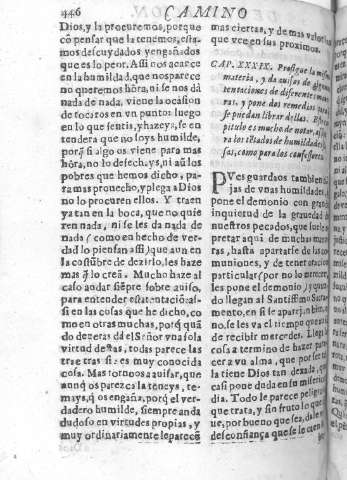 446
CAMINO
Dios, y la procuremos, porque
cō pensar que la tenemos, estamos descuydados y engañados
que es lo peor. Assi nos acaece
en la humildad, que nos parece
no queremos hōra, ni se nos dá
nada de nada, viene la ocasion
de tocaros en vn punto, luego
en lo que sentis, y hazeys, se entendera que no soys humilde,
porq̃ si algo os viene para mas
hōra, no lo desechays, ni aũ los
pobres que hemos dicho, para mas prouecho, y plega a Dios
no lo procuren ellos. Y traen
ya tan en la boca, que no quieren nada, ni se les da nada de
nada (como en hecho de verdad lo piensan assi) que aun en
la costũbre de dezirlo, les haze
mas q̃ lo creã. Mucho haze al
caso andar siẽpre sobre auiso,
para entender esta tentaciõ: assi en las cosas que he dicho, como en otras muchas, porq̃ quã
do de veras dá el Señor vna sola
virtud destas, todas parece las
trae tras si: es muy conocida
cosa. Mas tornoos a auisar, que
aunq̃ os parezca la teneys, temays, q̃ os engaña, porq̃ el verdadero humilde, siempre anda
dudoso en virtudes propias, y
muy ordinariamente le parecẽ
mas ciertas, y de mas valor las
que vee en sus proximos.
CAP. XXXIX. Prosigue la misma
materia, y da auisos de algunas
tentaciones de diferentes maneras, y pone dos remedios para
se puedan librar dellas. Este
pitulo es mucho de notar, assi
los tētados de humildades
sas, como para los confessores.
PVes guardaos tambien
jas de vnas humildades,
pone el demonio con grande
inquietud de la grauedad
nuestros pecados, que suele
pretar aqui de muchas maneras, hasta apartarse de las
muniones, y de tener oracion
particular (por no lo merecer,
les pone el demonio) y quando llegan al Santissimo Sacramento, en si se aparejaron bien,
no, se les va el tiempo que
de recibir mercedes. Llega
cosa a termino de hazer parecer a vna alma, que por ser
la tiene Dios tan dexada, que
casi pone duda en su misericordia. Todo le parece peligro
que trata, y sin fruto lo que
ue, por bueno que sea, dale
desconfiança que se le